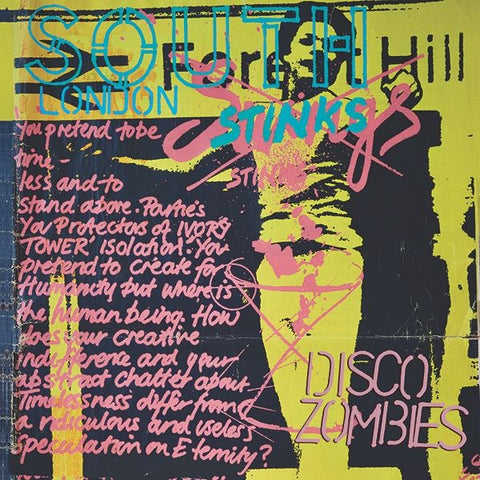 SOUTH
Forest Hill
LONDON
STINKS
STINKS
You pretend to be
time-
less and to
stand above. Parties
You Protectors of IVORY
TOWER' isolation. You
pretend to create for
Humanity but where is
the human being. How
does your creative
indifference and your
abstract chatter about
timelessness differ from
a ridiculous and useless
speculation on Eternity?
DISCO
ZOMBIES